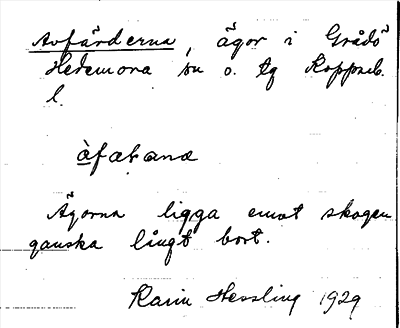 Avfärderna, ägor i Grådö
Hedemora sn o. tg Kopparb.
l.
àfæꞧana
Ägorna ligga emot skogen
ganska långt bort.
Karin Hessling 1929